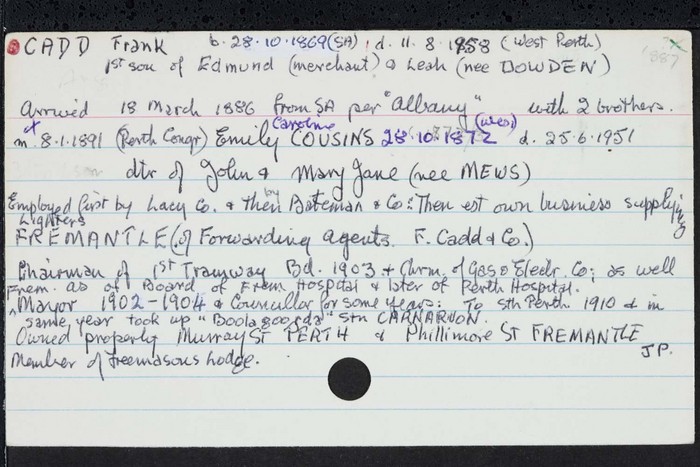 CADD Frank b. 28.10.1869 (SA), d. 11.8.1958 (West Perth)
1887
1st son of Edmund (merchant) & Leah (nee DOWDEN)
Arrived 18 March 1886 from SA per "Albany" with 2 brothers.
m. 8.1.1891 (Perth Congr) Emily Caroline COUSINS 28.10.1872 (Wes) d. 25.6.1951
dtr of John & Mary Jane (nee MEWS)
Employed first by Lacy Co. & then by Bateman & Co: Then est own business supplying
Lighters
FREMANTLE (of Forwarding agents. F. Cadd & Co.)
Chairman of 1st Tramway Bd. 1903 & Chrm. of Gas & Electr. Co; as well
Frem. as of Board of Frem Hospital & later of Perth Hospital.
Mayor 1902-1904 & Councillor for some years: To Sth Perth 1910 & in
same year took up "Boolagoorda" Stn CARNARVON.
Owned property Murray St PERTH & Phillimore St FREMANTLE
Member of Freemasons Lodge. JP.